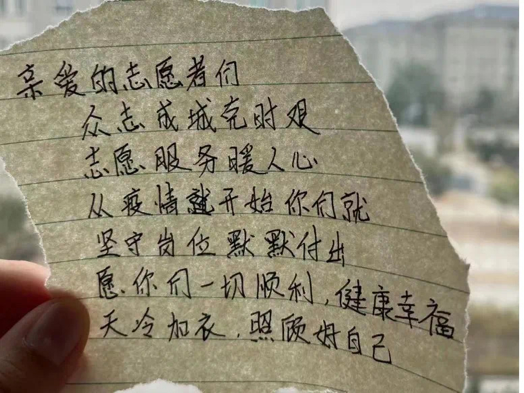 亲爱的志愿者们
众志成城克时艰
志愿服务暖人心
从疫情就开始你们就
坚守岗位默默付出
愿你们一切顺利，健康幸福
天冷加衣，照顾好自己